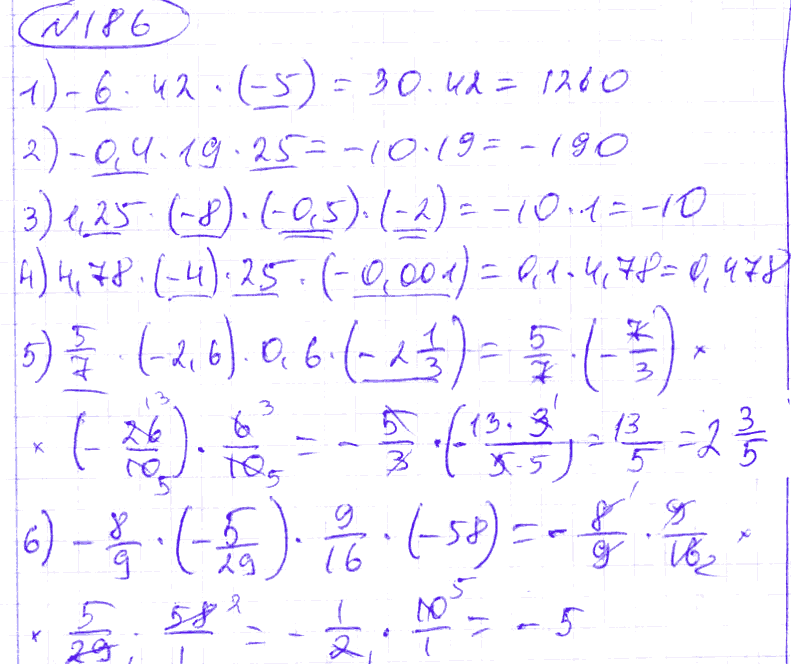 №186
1) -6 · 42 · (-5) = 30 · 42 = 1260
2) -0,4 · 19 · 25 = -10 · 19 = -190
3) 1,25 · (-8) · (-0,5) · (-2) = -10 · 1 = -10
4) 4,78 · (-4) · 25 · (-0,001) = 0,1 · 4,78 = 0,478
5) 5/7 · (-2,6) · 0,6 · (-2 1/3) = 5/7 · (-7/3) ×
× (-26/10) · 6/10 = -5/3 · (-13·3/5·5) = 13/5 = 2 3/5
6) -8/9 · (-5/29) · 9/16 · (-58) = -8/9 · 9/16 ×
× 5/29 · 58/1 = -1/2 · 10/1 = -5